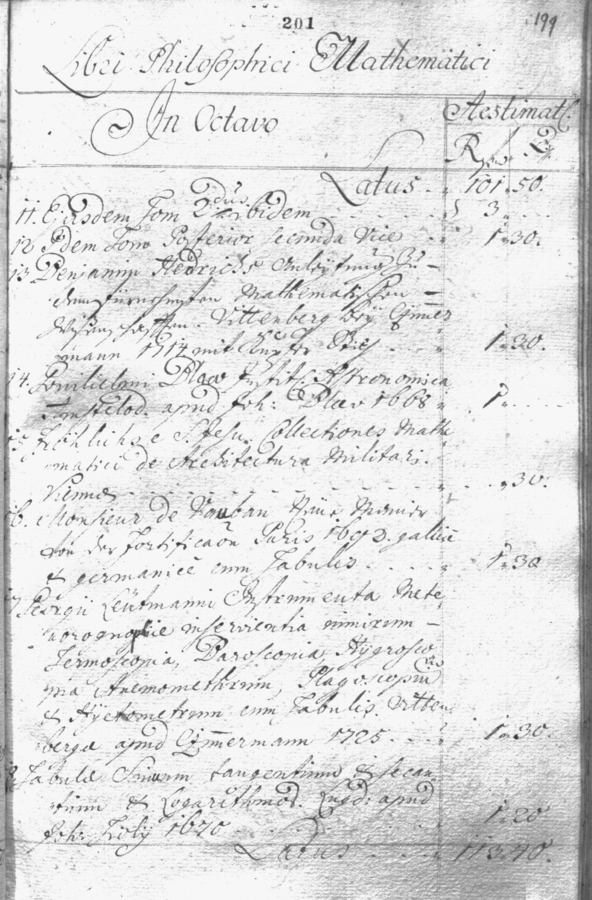 201
199
Libri Philosophici Mathematici
In Octavo
Aestimat
R X
Latus 101. 50.
11. Eiusdem Tom 2dus ibidem 3
12. Idem Tomo Posterior secunda vice 1. 30.
13 Benjamin Hedrichs Anleytung Zu
denen fürnehmsten Mathematischen
Wissenschafften. Vittenberg bey Zimer
mann 1714 mit Kupfer 1. 30.
14. Guilielmi Blaeu Instit. Astronomica
Amstelod. apud Joh: Blaeu 1668 1.
15. Fröhlich e S. Jesu Collectiones Mathe
matici de Architectura Militari.
Viennae 30.
16. Monsieur de Vauban Neue Manier
von der Fortificaon Paris 1692. gallicè
& germanicè cum Tabulis 1. 30
17 Georgii Leütmanni Instrumenta Mete
orognosiae inservientia nimirum
Termoscopia, Baroscopia, Hygrosco
pia Anemometrum, Plagoscopium
& Hyetometrum cum Tabulis. Vitten
bergæ apud Zimmermann 1725 1. 30.
Tabulæ Sinuum tangentium & secan
tium & Logarithmor. Lugd: apud
Joh: 1670 1. 20
Latus 113. 40.